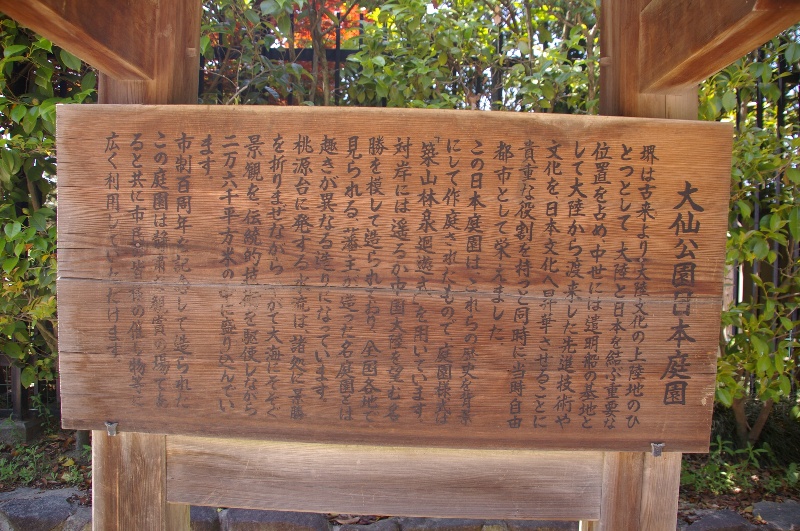 大仙公園日本庭園
堺は古来より大陸文化の上陸地のひ
とつとして、大陸と日本を結ぶ重要な
位置を占め、中世には遣明船の基地と
して大陸から渡来した先進技術や
文化を日本文化へ昇華させることに
貴重な役割を持つと同時に当時自由
都市として栄えました。
この日本庭園はこれらの歴史を背景
にして作庭されたもので、庭園様式は
「築山林泉廻遊式」を用いています。
対岸には遥るか中国大陸を望む名
勝を模して造られており、全国各地で
見られる、藩主が造った名庭園とは
趣きが異なる造りになっています。
桃源台に発する水音は、諸処に景勝
を折りまぜながら、やがて大海にそそぐ
景観を、伝統的技術を駆使しながら
二万六千平方米の中に盛り込んでい
ます。
市制百周年を記念して造られた
この庭園は静粛な観賞の場であ
ると共に市民の皆様の催し物等に
広く利用していただけます。